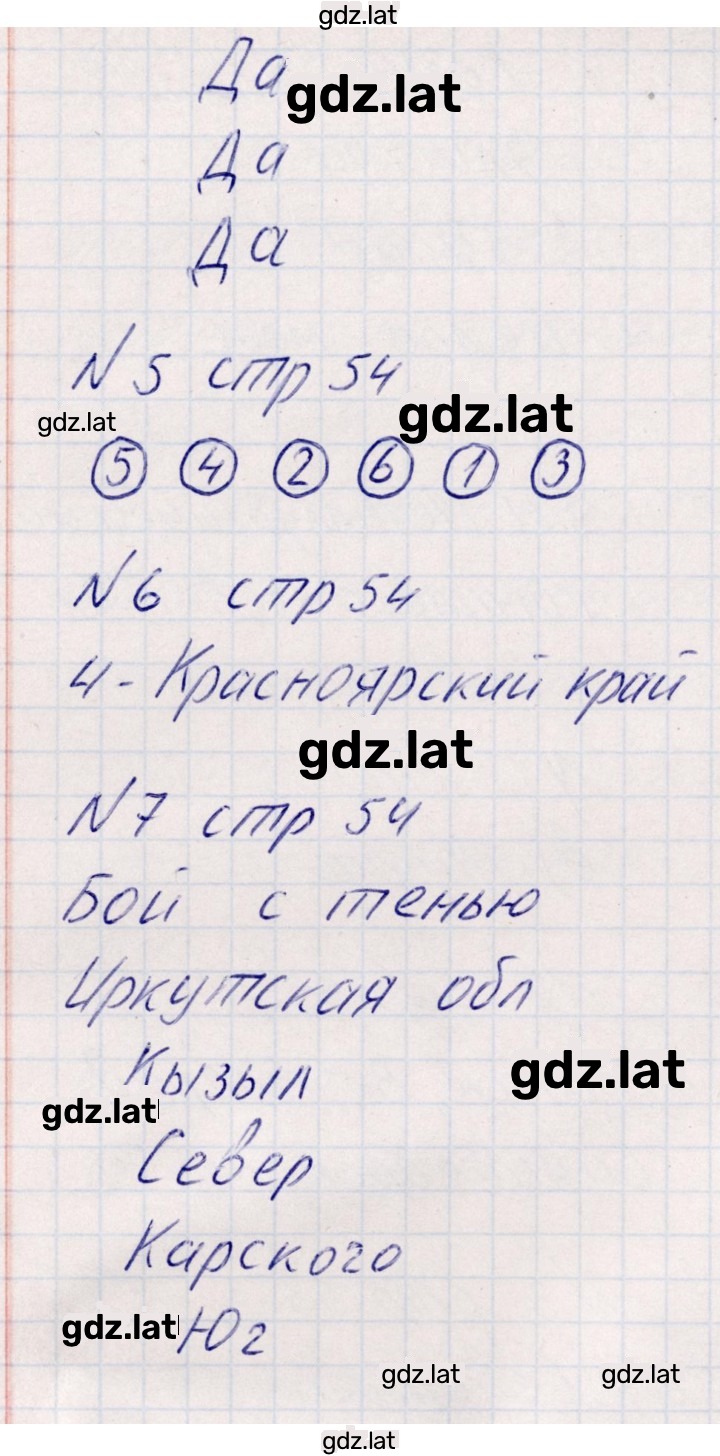 gdz.lat
Да
gdz.lat
Да
Да
N 5 стр 54
gdz.lat
gdz.lat
5 4 2 6 1 3
N 6 стр 54
4 - Красноярский край
gdz.lat
N 7 стр 54
Бой с тенью
Иркутская обл
gdz.lat
Кызыл
gdz.lat
Север
Карского
gdz.lat
Юг
gdz.lat gdz.lat
gdz.lat